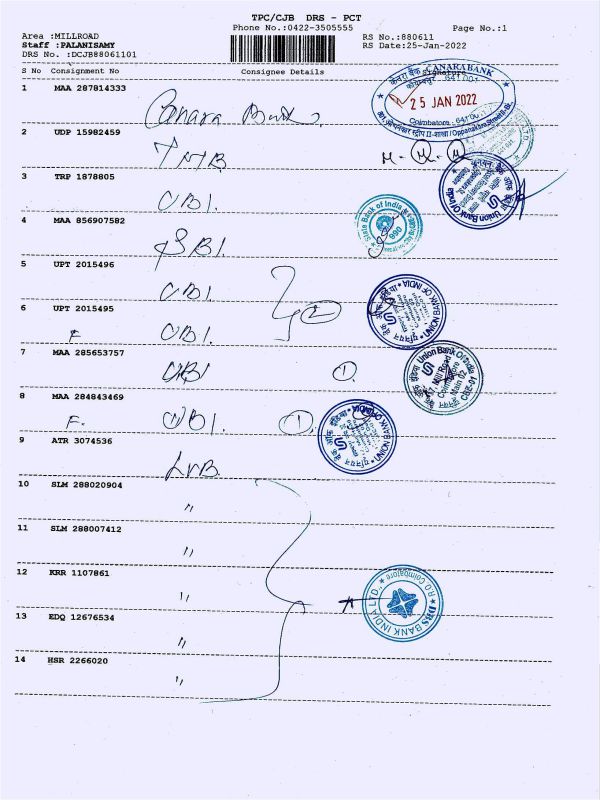 TPC/CJB DRS - PCT
Phone No.:0422-3505555 Page No.:1
Area :MILLROAD RS No.:880611
Staff :PALANISAMY RS Date:25-Jan-2022
DRS No. :DCJB88061101
S No Consignment No Consignee Details Signature
1 MAA 287814333
Canara Bank
CANARA BANK
केनरा बैंक
25 JAN 2022
Coimbatore - 641 001
2 UDP 15982459
TMB
M.
3 TRP 1878805
UBI.
Union Bank Of India
4 MAA 856907582
SBI.
State Bank of India
5 UPT 2015496
UBI.
6 UPT 2015495
F UBI. 2
UNION BANK OF INDIA
7 MAA 285653757
UBI 1.
Union Bank Of India
Mill Road
Coimbatore
Main
CBE-01
8 MAA 284843469
F. UBI. 1.
UNION BANK OF INDIA
9 ATR 3074536
LVB
10 SLM 288020904
"
11 SLM 288007412
"
12 KRR 1107861
"
DBS BANK INDIA LTD.,
R.O. Coimbatore
13 EDQ 12676534
"
14 HSR 2266020
"